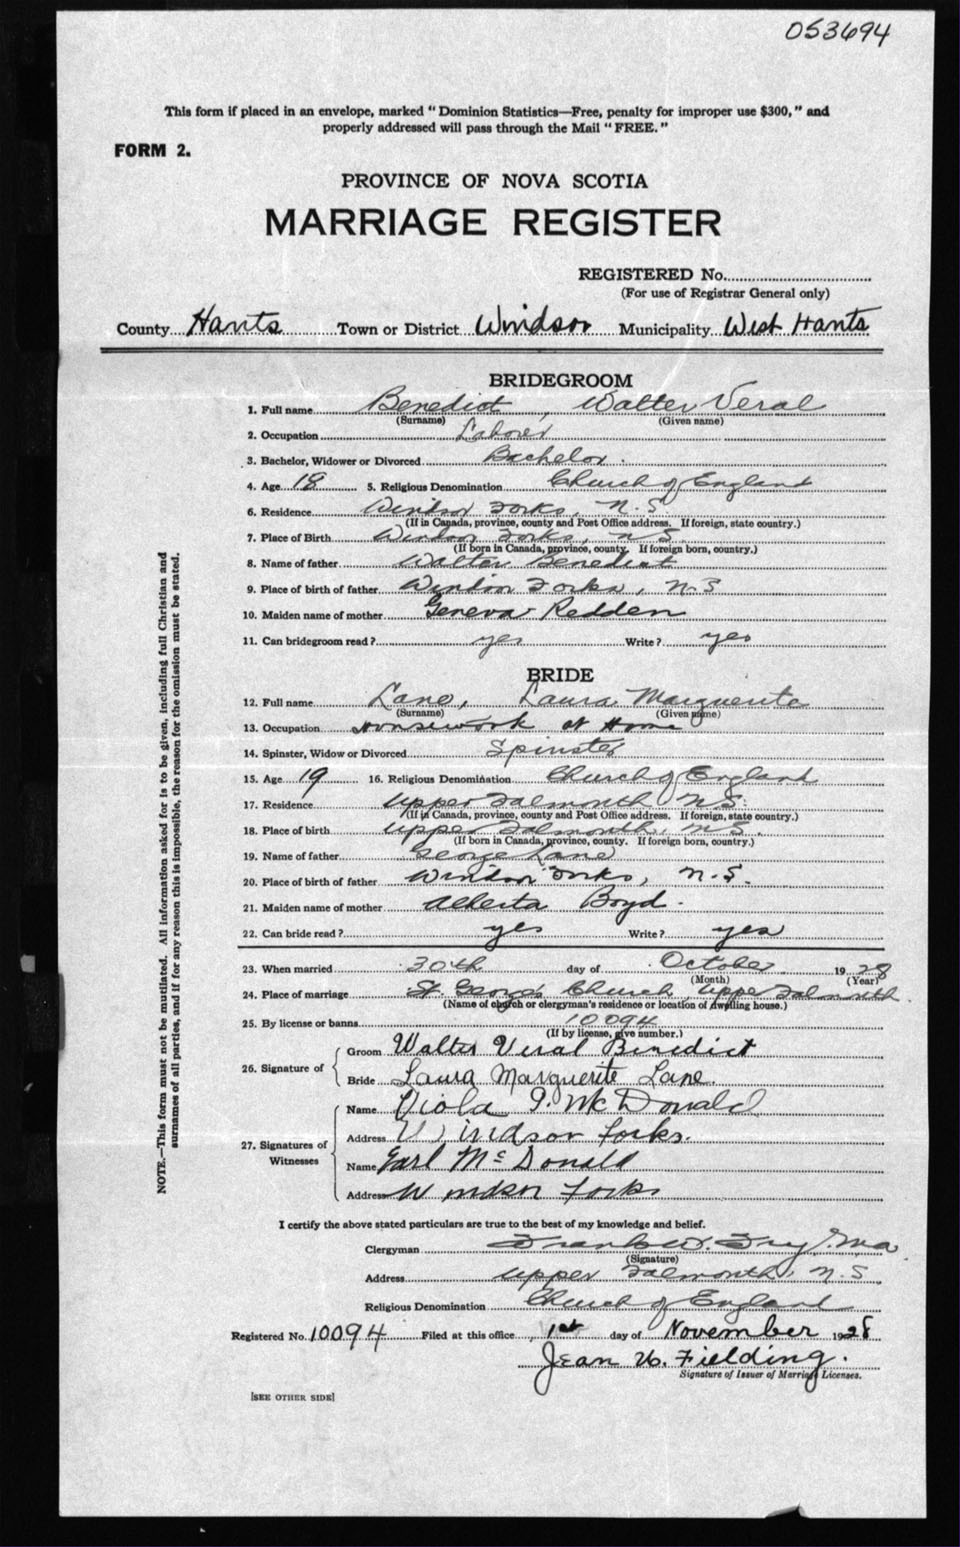 053694
This form if placed in an envelope, marked "Dominion Statistics—Free, penalty for improper use $300," and
properly addressed will pass through the Mail "FREE."
FORM 2.
PROVINCE OF NOVA SCOTIA
MARRIAGE REGISTER
REGISTERED No.
(For use of Registrar General only)
County Hants Town or District Windsor Municipality West Hants
BRIDEGROOM
1. Full name Benedict, Walter Veral
(Surname) (Given name)
2. Occupation Laborer
3. Bachelor, Widower or Divorced Bachelor.
4. Age 18 5. Religious Denomination Church of England
6. Residence Windsor Forks, N.S
(If in Canada, province, county and Post Office address. If foreign, state country.)
7. Place of Birth Windsor Forks, NS
(If born in Canada, province, county. If foreign born, country.)
8. Name of father Walter Benedict
9. Place of birth of father Windsor Forks, NS
10. Maiden name of mother Geneva Redden
11. Can bridegroom read? yes Write? yes
BRIDE
12. Full name Lane, Laura Marguerite
(Surname) (Given name)
13. Occupation Housework at Home
14. Spinster, Widow or Divorced Spinster
15. Age 19 16. Religious Denomination Church of England
17. Residence Upper Falmouth NS.
(If in Canada, province, county and Post Office address. If foreign, state country.)
18. Place of birth Upper Falmouth, NS.
(If born in Canada, province, county. If foreign born, country.)
19. Name of father George Lane
20. Place of birth of father Windsor Forks, N.S.
21. Maiden name of mother Alberta Boyd.
22. Can bride read? yes Write? yes
23. When married 30th day of October 1928
(Month) (Year)
24. Place of marriage St. George's Church, Upper Falmouth.
(Name of church or clergyman's residence or location of dwelling house.)
25. By license or banns 10094
(If by license, give number.)
26. Signature of
Groom Walter Veral Benedict
Bride Laura Marguerite Lane.
27. Signatures of Witnesses
Name Viola J. McDonald
Address Windsor Forks.
Name Earl McDonald
Address Windsor Forks
I certify the above stated particulars are true to the best of my knowledge and belief.
Clergyman Frank W. Fry. M.A.
(Signature)
Address Upper Falmouth, N.S
Religious Denomination Church of England
Registered No. 10094 Filed at this office 1st day of November 1928
Jean W. Fielding.
Signature of Issuer of Marriage Licenses.
[SEE OTHER SIDE]
NOTE.—This form must not be mutilated. All information asked for is to be given, including full Christian and
surnames of all parties, and if for any reason this is impossible, the reason for the omission must be stated.